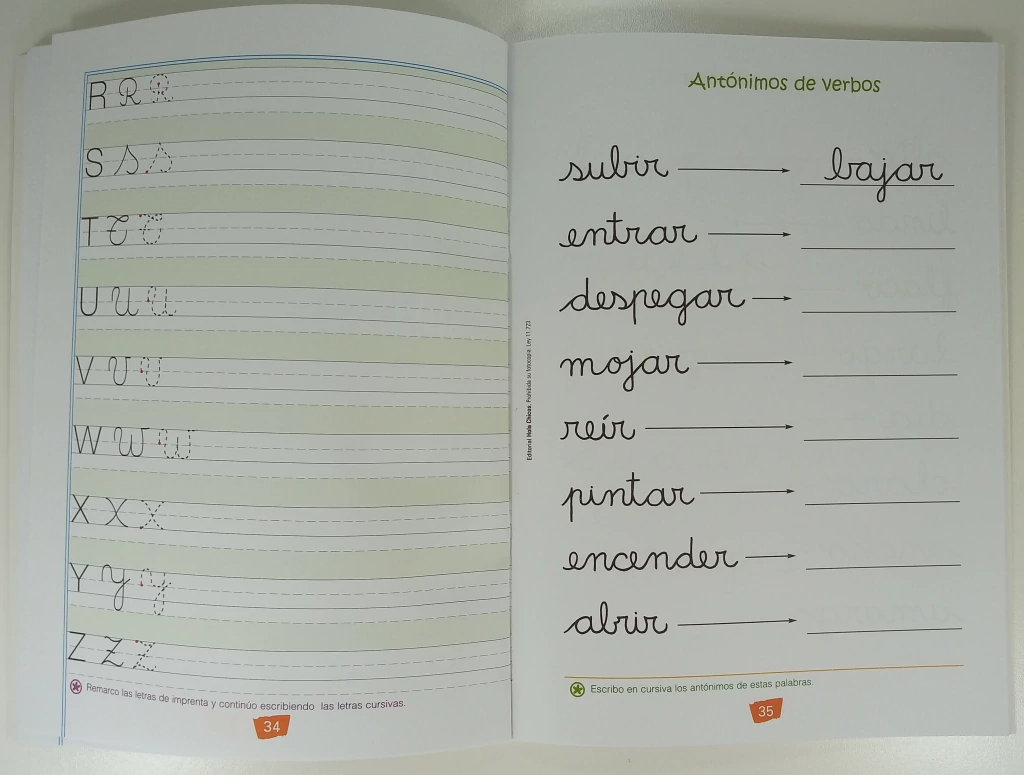 R R R
S S S
T T T
U U U
V V V
W W W
X X X
Y Y Y
Z Z Z
Remarco las letras de imprenta y continúo escribiendo las letras cursivas.
34
Editorial Hola Chicos. Prohibida su fotocopia. Ley 11.723
Antónimos de verbos
subir bajar
entrar
despegar
mojar
reír
pintar
encender
abrir
Escribo en cursiva los antónimos de estas palabras.
35